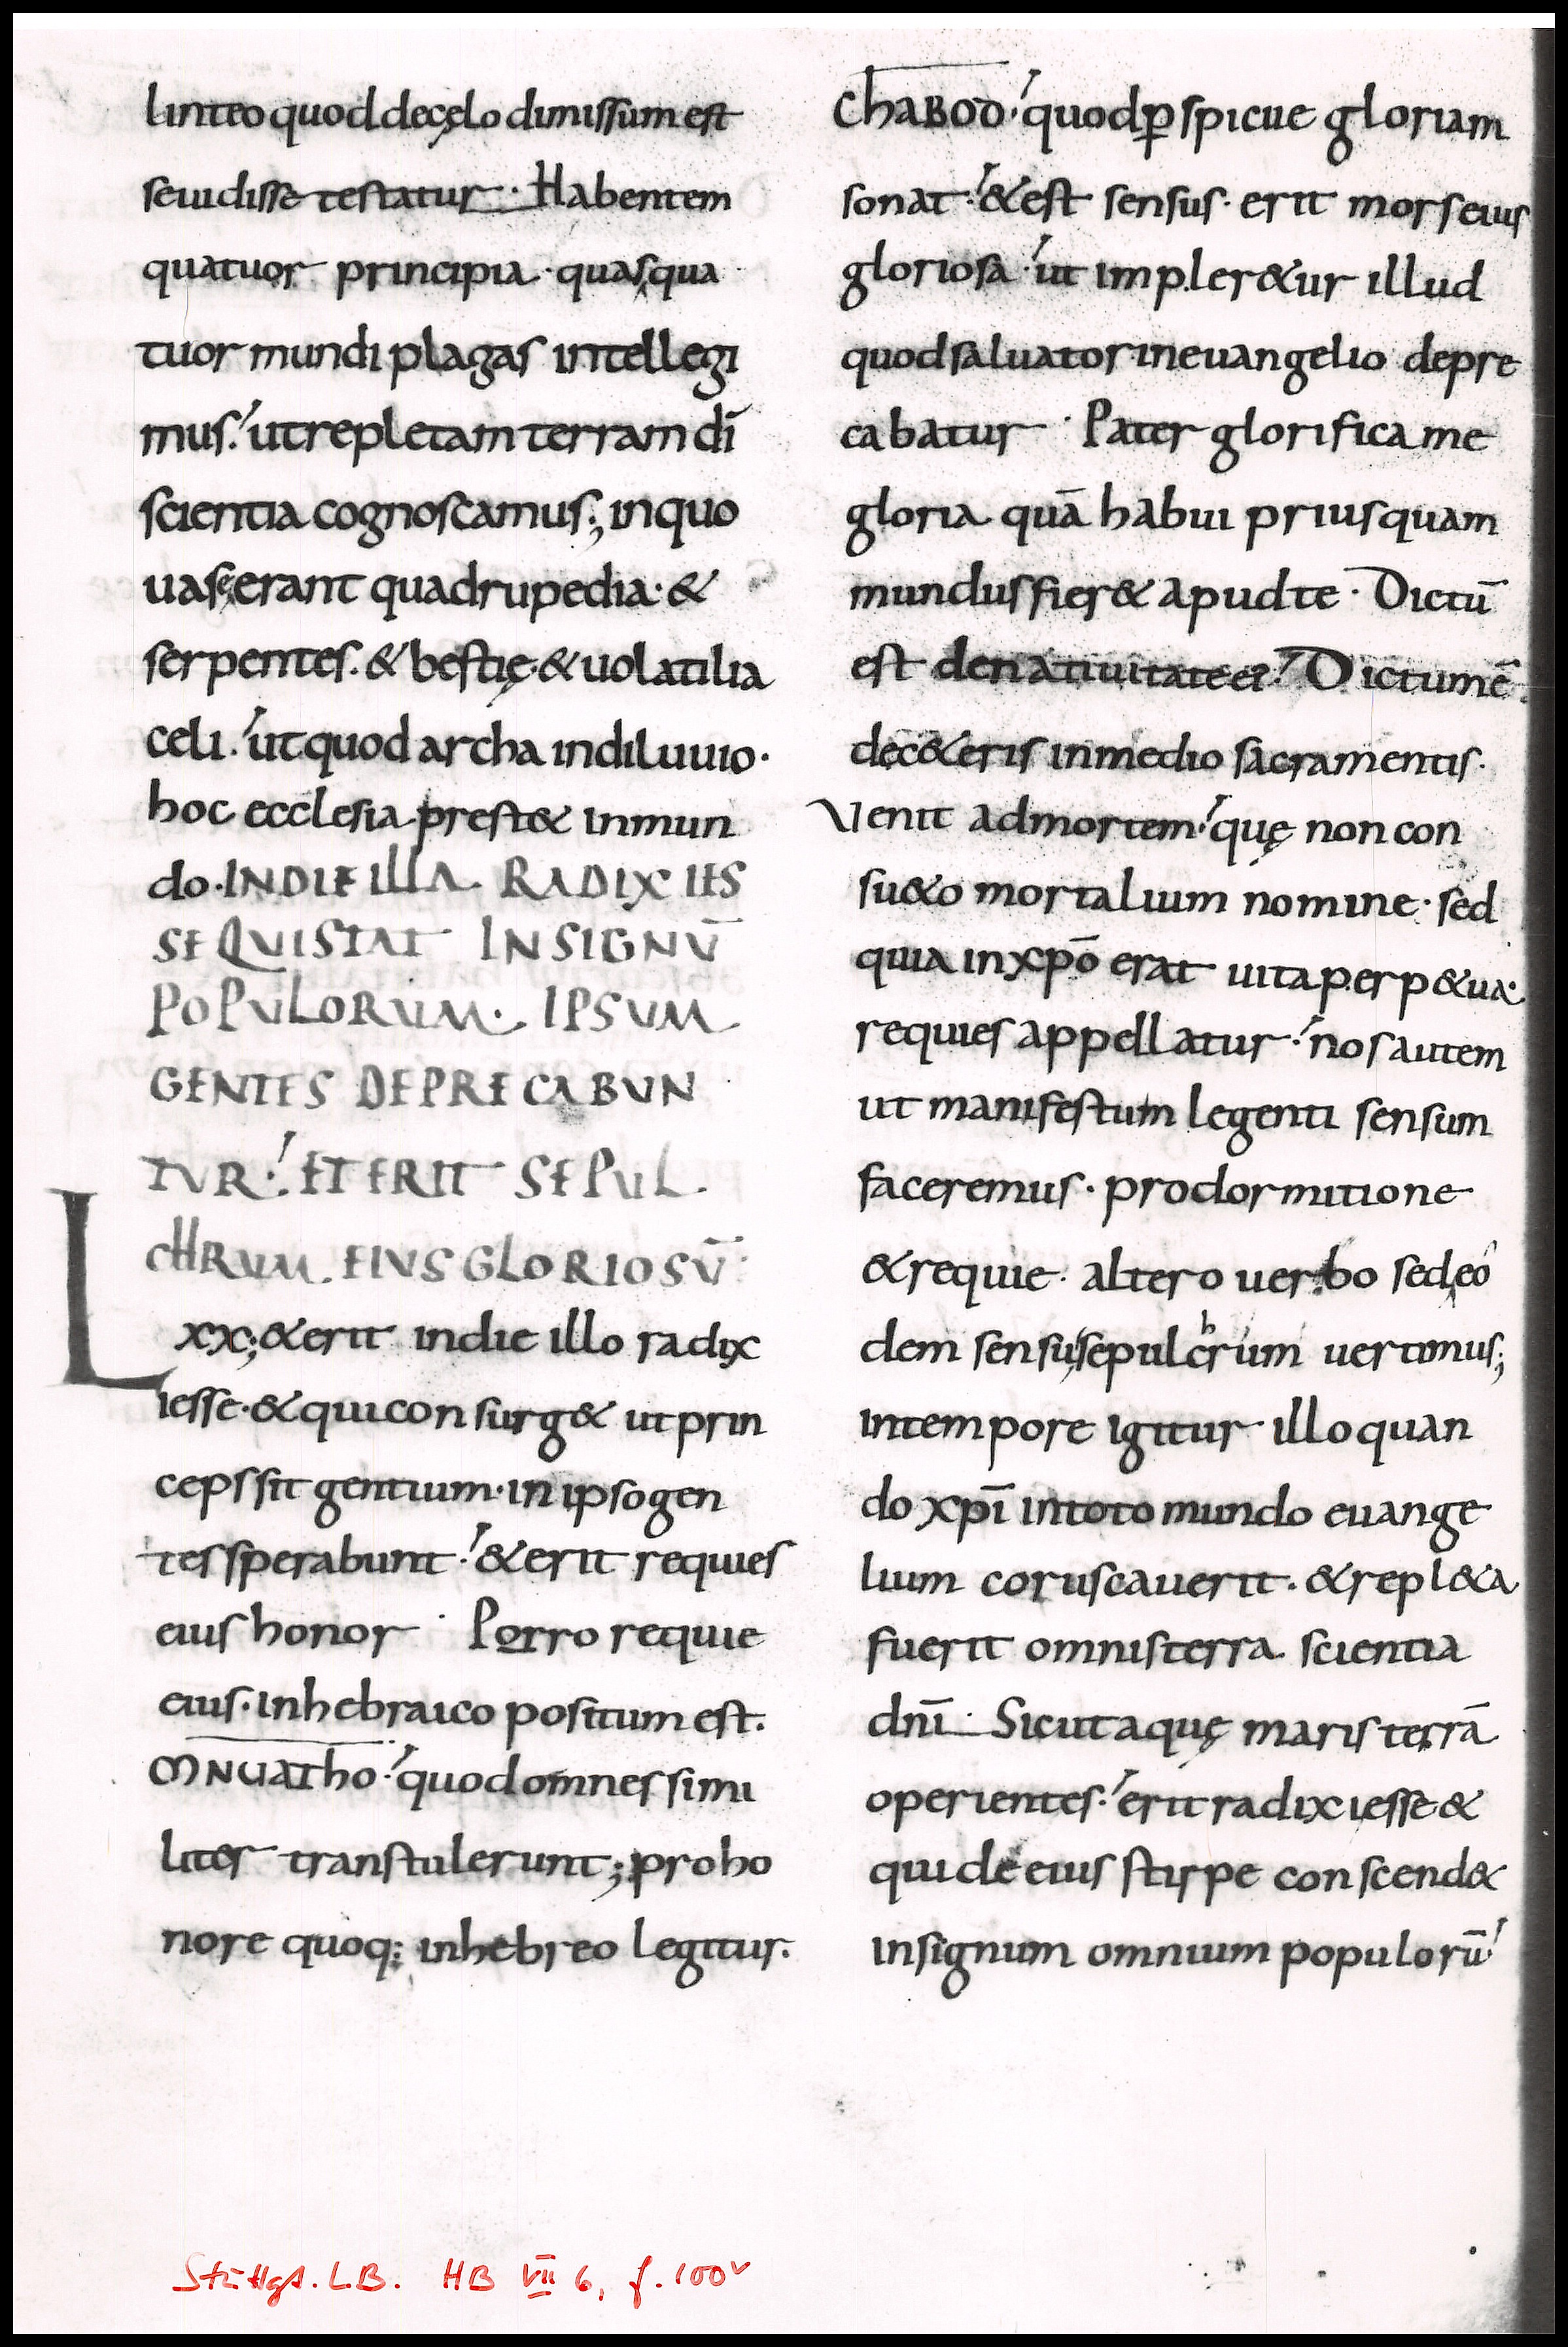 linteo quod de cęlo dimissum est
se uidisse testatur · Habentem
quatuor principia · quas qua
tuor mundi plagas intellegi
mus. ut repletam terram dī
scientia cognoscamus; in quo
uase erant quadrupedia · &
serpentes. & bestię · & uolatilia
celi. ut quod archa in diluuio ·
hoc ecclesia prest& in mun
do · IN DIE ILLA RADIX IES
SE QUI STAT IN SIGNŪ
POPULORUM · IPSUM
GENTES DEPRECABUN
TUR · ET ERIT SEPUL
CHRUM EIUS GLORIOSŪ
Lxx; & erit in die illo radix
iesse · & qui consurg& ut prin
ceps sit gentium · in ipso gen
tes sperabunt · & erit requies
eius honor · Porro requie
eius · in hebraico positum est.
MNUATHO · quod omnes simi
liter transtulerunt; pro ho
nore quoq; in hebreo legitur.
ChABOD · quod p̱spicue gloriam
sonat · & est sensus · erit mors eius
gloriosa · ut impler&ur illud
quod saluator in euangelio depre
cabatur · Pater glorifica me
gloria quā habui priusquam
mundus fier& apud te · Dictū
est de natiuitate ei? Dictum ē
de c&eris in medio sacramentis ·
Venit ad mortem · quę non con
su&o mortalium nomine · sed
quia in xp̄o erat uita perp&ua ·
requies appellatur · nos autem
ut manifestum legenti sensum
faceremus · pro dormitione
& requie · altero uerbo sed eo
dem sensu sepulchrum uertimus;
in tempore igitur illo quan
do xp̄i in toto mundo euange
lium coruscauerit. & repl&a
fuerit omnis terra scientia
dnī · Sicut aquę maris terrā
operientes · erit radix iesse &
qui de eius stirpe conscend&
in signum omnium populorū
Stuttgt. L.B. HB VII 6, f. 100v